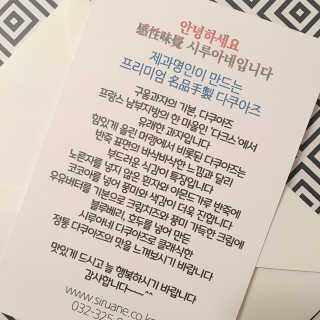 안녕하세요
感性味覺 시루아네입니다
제과명인이 만드는
프리미엄 名品手製 다쿠아즈
구움과자의 기본, 다쿠아즈
프랑스 남부지방의 한 마을인 '다크스'에서
유래한 과자입니다
힘있게 올린 머랭에서 비롯된 다쿠아즈는
반죽 표면의 바삭바삭한 느낌과 달리
부드러운 식감이 특징입니다
노른자를 넣지 않은 흰자와 아몬드가루 반죽에
코코아를 넣어 풍미와 색감이 더욱 진합니다
우유버터를 기본으로 크림치즈와 풍미 가득한 크림에
블루베리, 호두를 넣어 만든
시루아네 다쿠아즈로 클래식한
정통 다쿠아즈의 맛을 느껴보시기 바랍니다
맛있게 드시고 늘 행복하시기 바랍니다
감사합니다-----^^
www.siruane.co.k
032-325